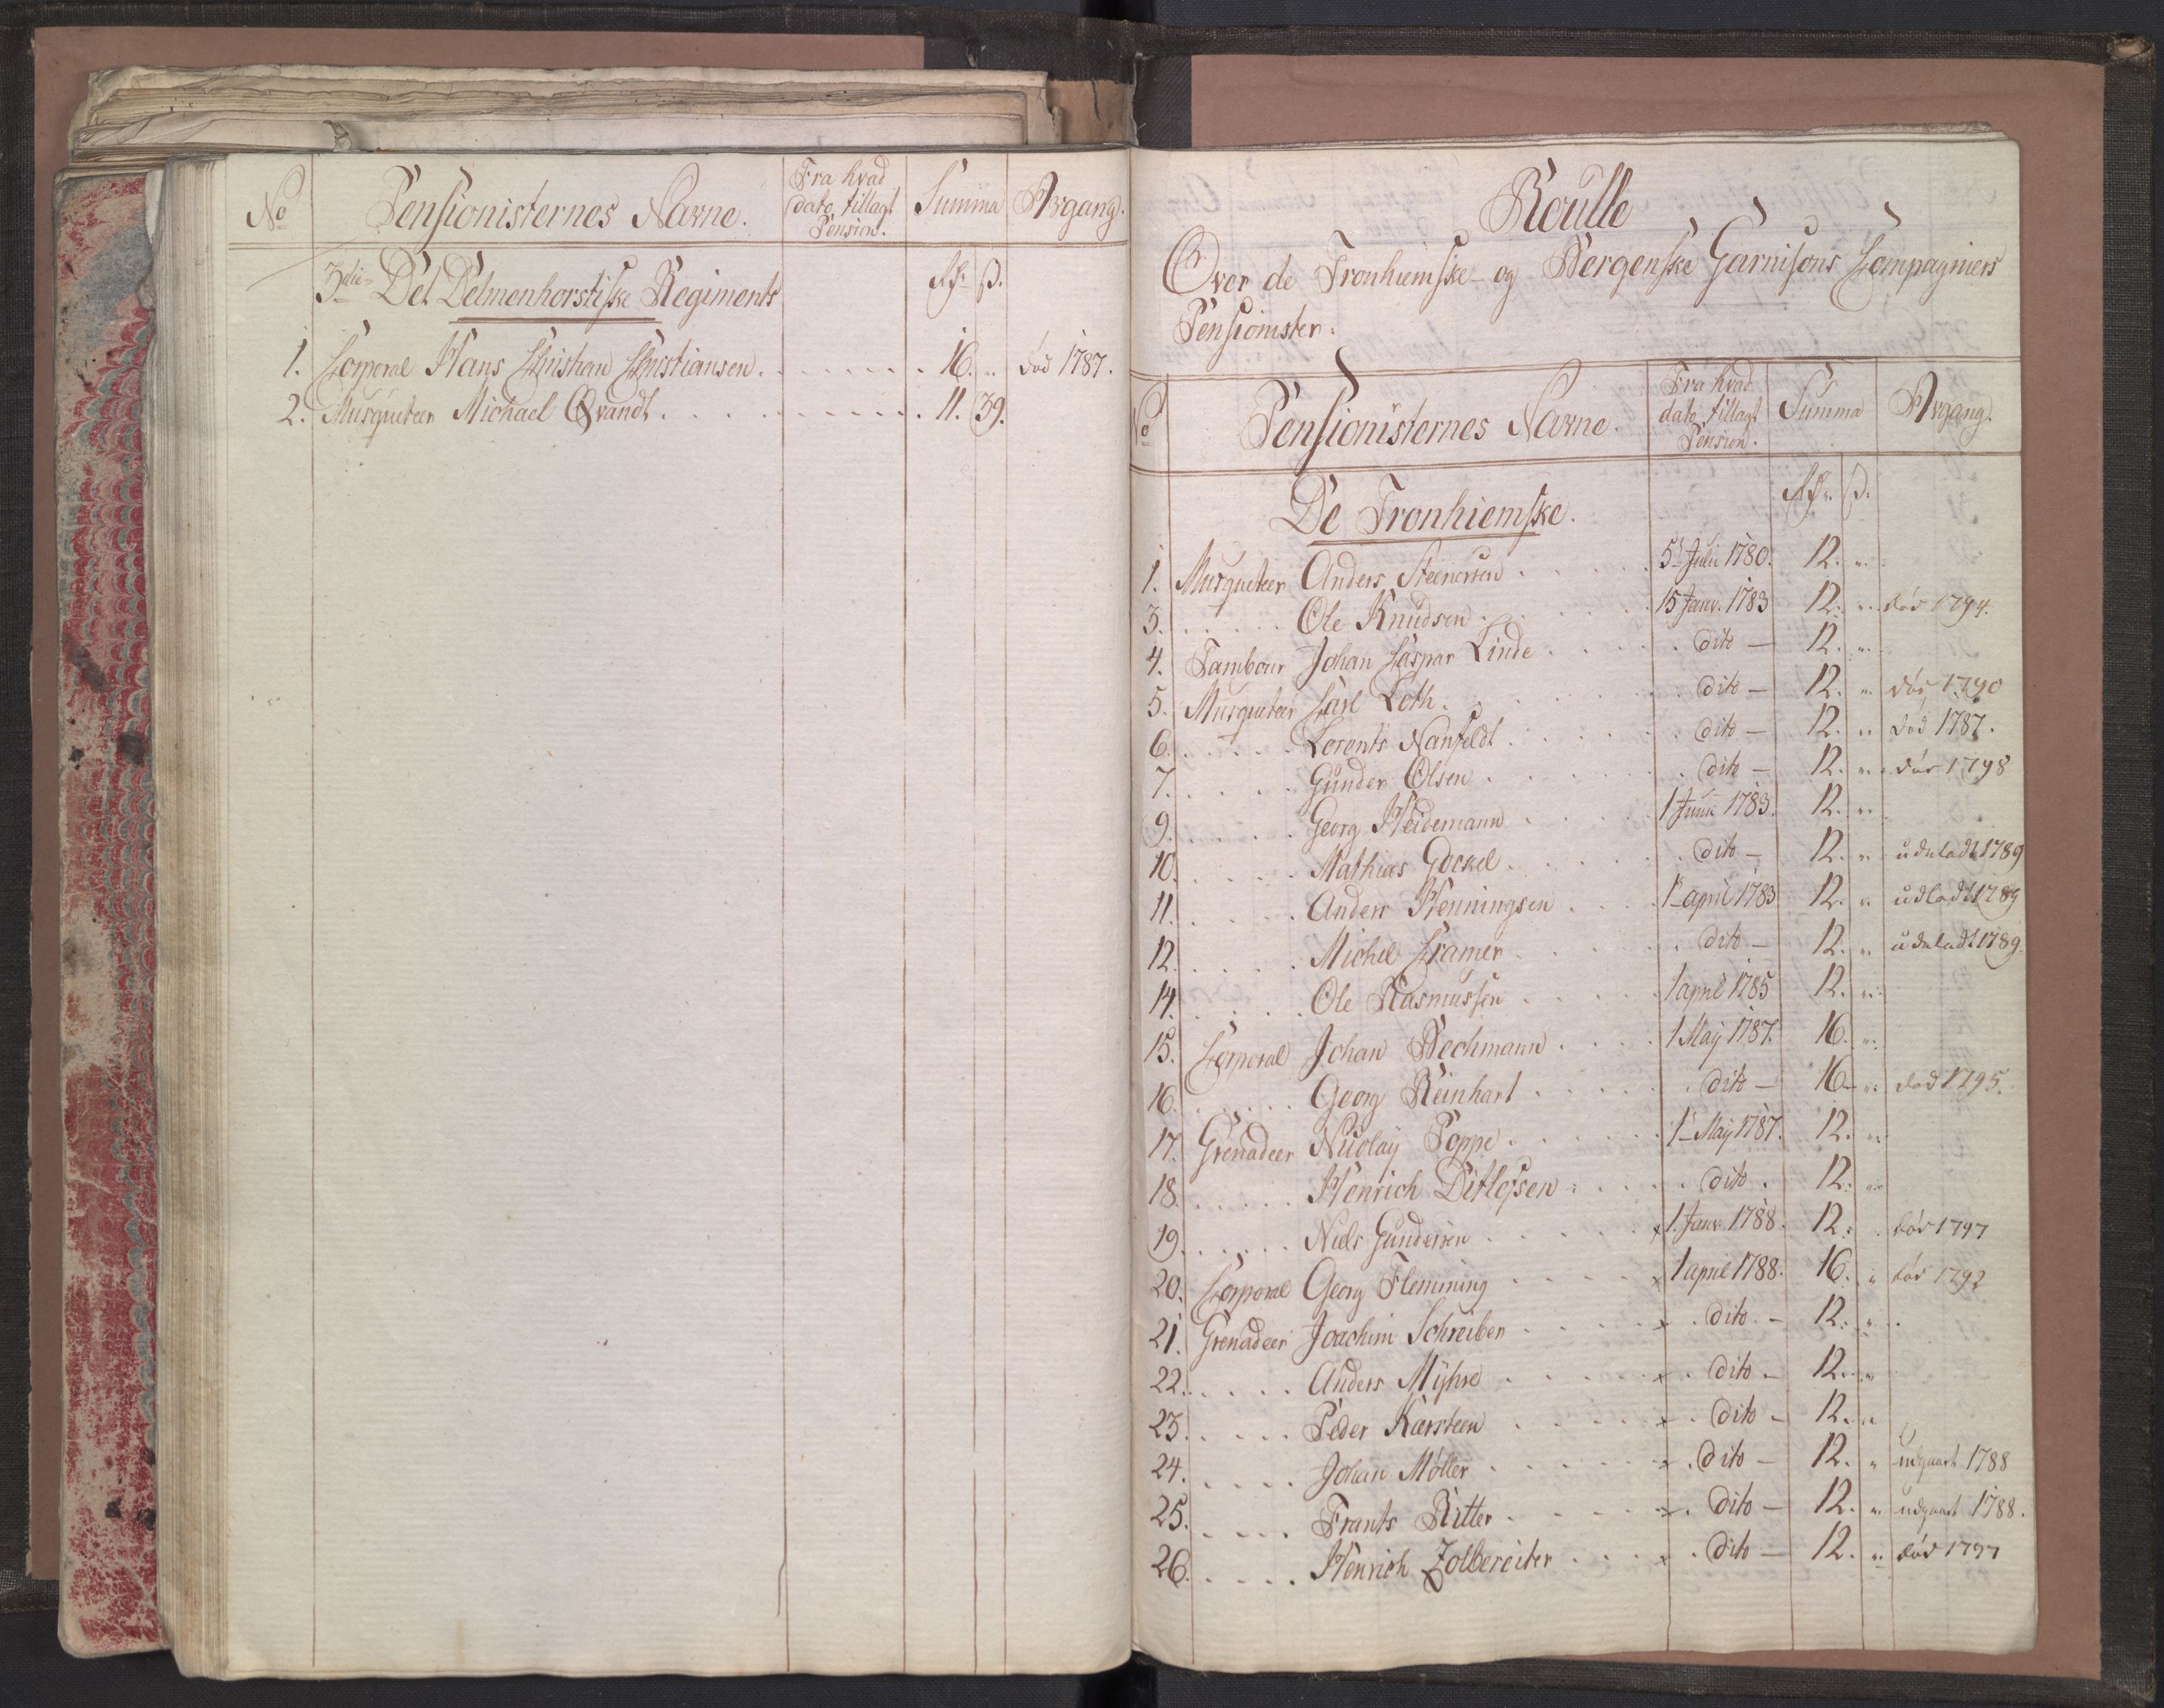 No Pensionisternes Navne. Fra hvad dato tillagt Pension. Summa Afgang.
3die Det Delmenhorstiske Regiment Rdr. ß.
1. Corporal Hans Christian Christiansen. 16. " død 1787.
2. Musqueteer Michael Qvandt. 11. 39.
Roulle
Over de Tronhiemske og Bergenske Garnisons Compagniers
Pensionister.
No Pensionisternes Navne. Fra hvad dato tillagt Pension. Summa Afgang.
De Tronhiemske. Rdr. ß.
1. Musqueteer Anders Steenersen 5 Julii 1780. 12. "
3. Ole Knudsen 15 Janv. 1783 12. " død 1794.
4. Tambour Johan Caspar Linde dito – 12. "
5. Musqueteer Carl Loth. dito – 12. " død 1790
6. Lorents Nanfeldt dito – 12. " død 1787.
7. Gunder Olsen dito – 12. " død 1798
9. Georg Heidemann 1 Junii 1783. 12. "
10. Mathias Gockel dito – 12. " udeladt 1789
11. Anders Henningsen 1 april 1783 12. " udladt 1789
12. Michel Cramer dito – 12. " udeladt 1789
14. Ole Rasmussen 1 april 1785 12. "
15. Corporal Johan Bechmann 1 Maÿ 1787. 16. "
16. Georg Reinhart dito – 16 – " død 1795.
17. Grenadeer Nicolaÿ Poppe 1 Maÿ 1787. 12. "
18. Henrich Ditlefsen dito. 12. "
19. Niels Gundersen x 1. Janv. 1788. 12. død 1797
20. Corporal Georg Flemming x 1 april 1788. 16. " død 1792
21. Grenadeer Joachim Schreiber x dito – 12. "
22. Anders Mÿhre x dito – 12. "
23. Peder Karsteen x dito – 12. "
24. Johan Møller x dito – 12. " udgaaet 1788
25. Frants Ritter x dito – 12. " udgaaet 1788.
26. Henrich Zolbereiter x dito – 12. " død 1797